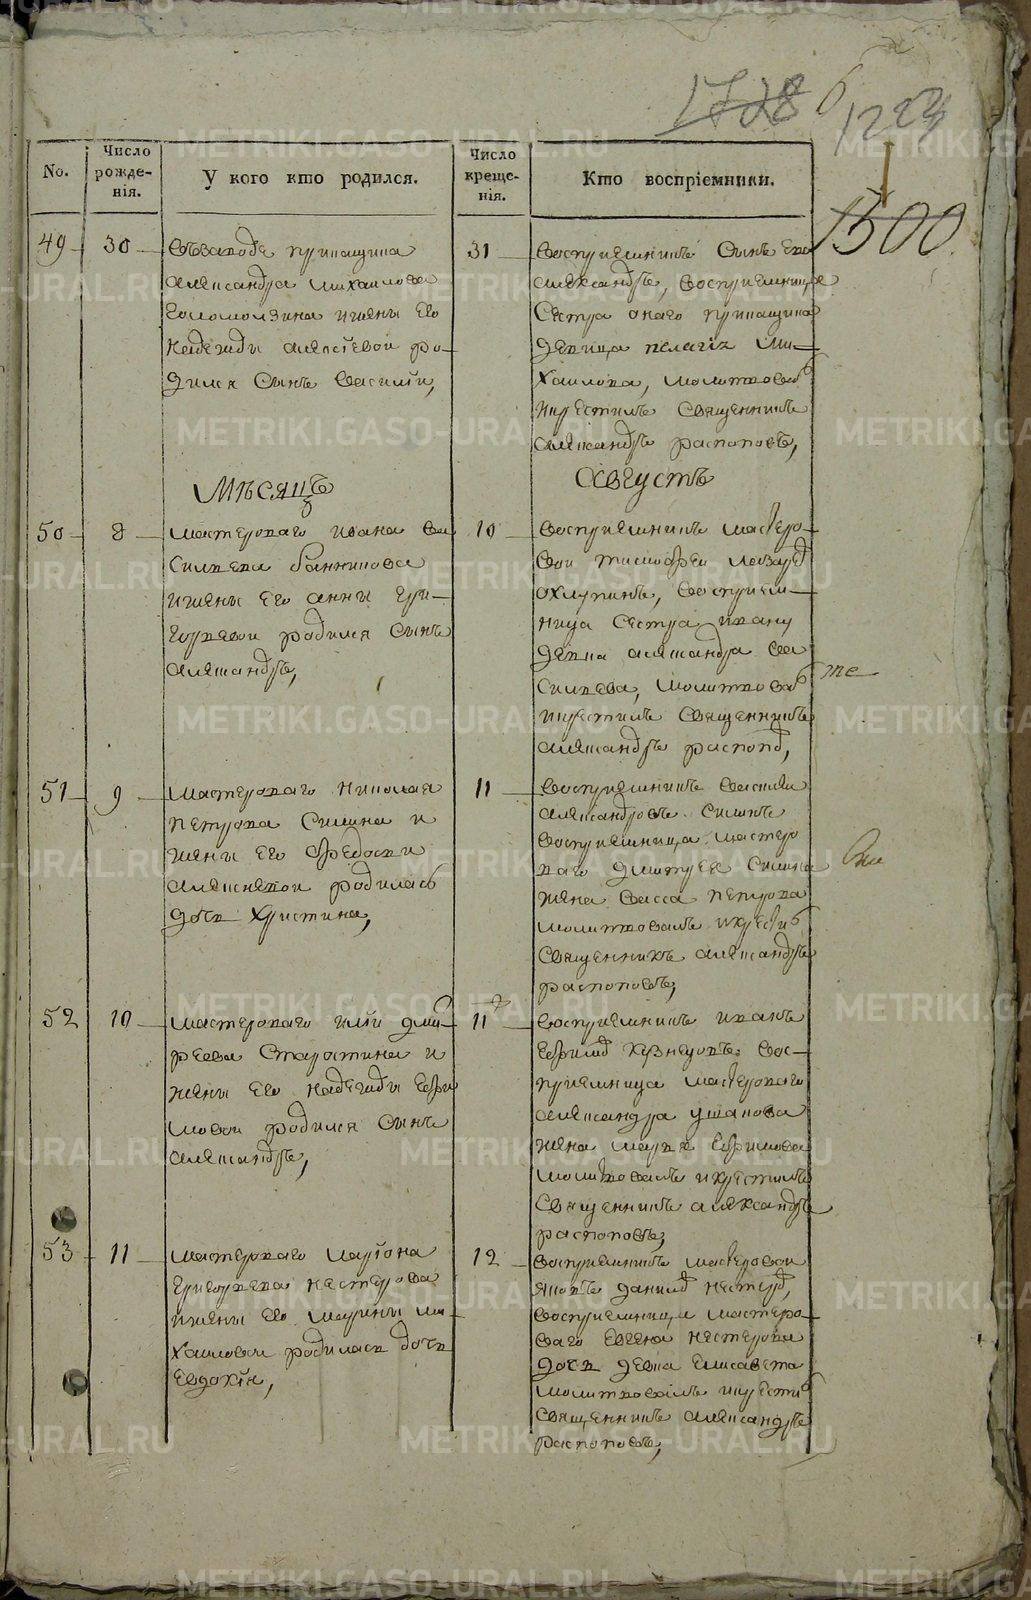 1728 б
1223
1500
No.
Число рожде-нія.
У кого кто родился.
Число креще-нія.
Кто воспріемники.
49
30
Александра Михайлова
Голомолзина и жены его
Надежды Алексѣевой ро-
дился сынъ Василій,
31
Воспріемникъ сынъ его
Александръ, воспріемница
сестра онаго прикащика
девица Пелагія Ми-
хайлова, молитвовалъ
и крестилъ священникъ
Александръ Распоповъ,
Мѣсяцъ
Августъ
50
8
Мастероваго Ивана Ва
сильева Банникова
и жены его Анны Гри-
горьевой родился сынъ
Александръ,
10
Воспріемникъ мастеро-
вой Тимофей
Охлупинъ, воспріем-
ница сестра Ивану
девка Александра Ва
сильева, молитвовалъ
и крестилъ священникъ
Александръ Распоповъ,
те
51
9
Мастероваго Николая
Петрова Силина и
жены его Федосьи
Алексѣевой родилась
дочь Христина,
11
Воспріемникъ Василій
Александровъ Силинъ
воспріемница мастеро
ваго Дмитрея Силина
жена Васса Петрова
молитвовалъ и крестилъ
священникъ Александръ
Распоповъ,
52
10
Мастероваго Дмит-
реева Старостина и
жены его Надежды Ефи
мовой родился сынъ
Александръ,
11
Воспріемникъ Иванъ
Ефимовъ Кузнецовъ, вос-
пріемница мастероваго
Александра Ушакова
жена Марья Ефимова
молитвовалъ и крестилъ
священникъ Александръ
Распоповъ,
53
11
Мастероваго Ларіона
Григорьева Нестерова
и жены его Марины Ми-
хайловой родилась дочь
Евдокія,
12
Воспріемникъ мастеровой
Яковъ Данилов Нестеров,
воспріемница мастеро-
ваго Евсея Нестерова
дочь девка Елисавета
молитвовалъ и крестилъ
священникъ Александръ
Распоповъ,
METRIKI.GASO-URAL.RU